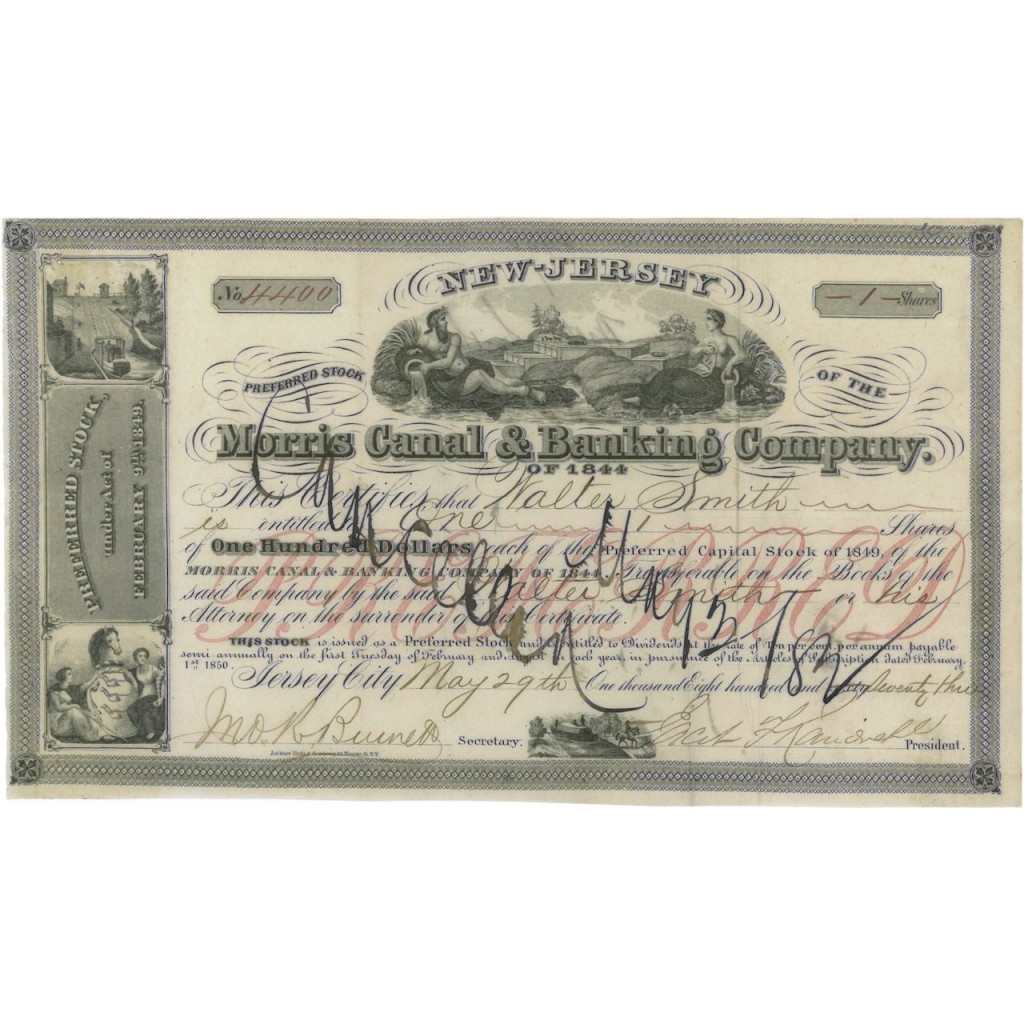 No 4400
NEW-JERSEY
— 1 — Shares
PREFERRED STOCK
OF THE
Morris Canal & Banking Company.
OF 1844
PREFERRED STOCK,
under Act of
FEBRUARY 9th 1849.
This Certifies that Walter Smith
is entitled to One 1 Shares
of One Hundred Dollars each of the Preferred Capital Stock of 1849, of the
MORRIS CANAL & BANKING COMPANY OF 1844, Transferable on the Books of the
said Company by the said Walter Smith or his
Attorney on the surrender of this Certificate.
PREFERRED
THIS STOCK is issued as a Preferred Stock and entitled to Dividends at the rate of Ten per cent. per annum payable
semi-annually on the first Tuesday of February and August in each year in pursuance of the Articles of Subscription dated February
1st 1850.
Jersey City May 29th One thousand Eight hundred and Seventy three
Secretary.
President.
Cancelled May 3/82